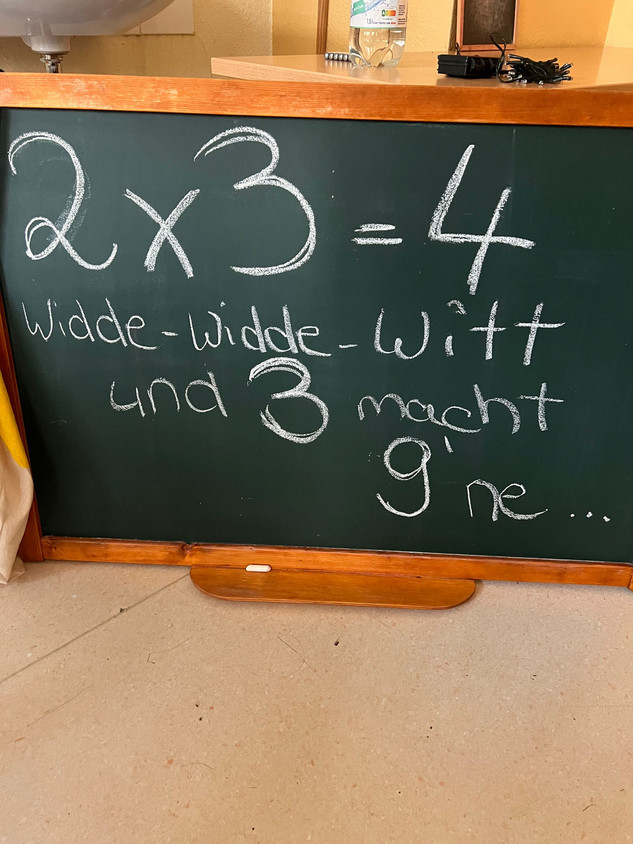 2 x 3 = 4
Widde-widde-witt
und 3 macht
9' ne ...